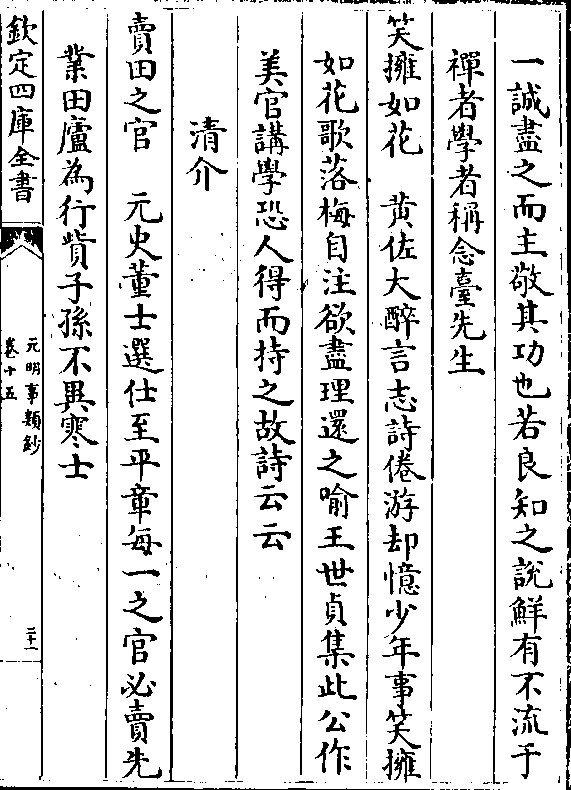 一誠盡之而主敬其功也若良知之説鮮有不流于
禪者學者稱念臺先生
笑擁如花　黄佐大醉言志詩倦游却憶少年事笑擁
如花歌落梅自注欲盡理還之喻王世貞集此公作
美官講學恐人得而持之故詩云云
清介
賣田之官　元史董士選仕至平章每一之官必賣先
業田廬為行貲子孫不異寒士
欽定四庫全書
元明事類鈔
卷十五
二十一